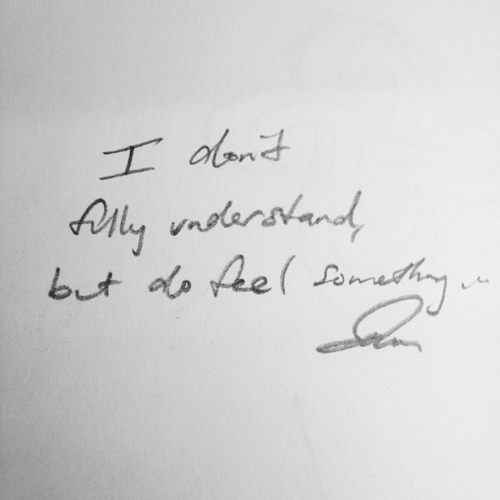 I don't
fully understand,
but do feel something...